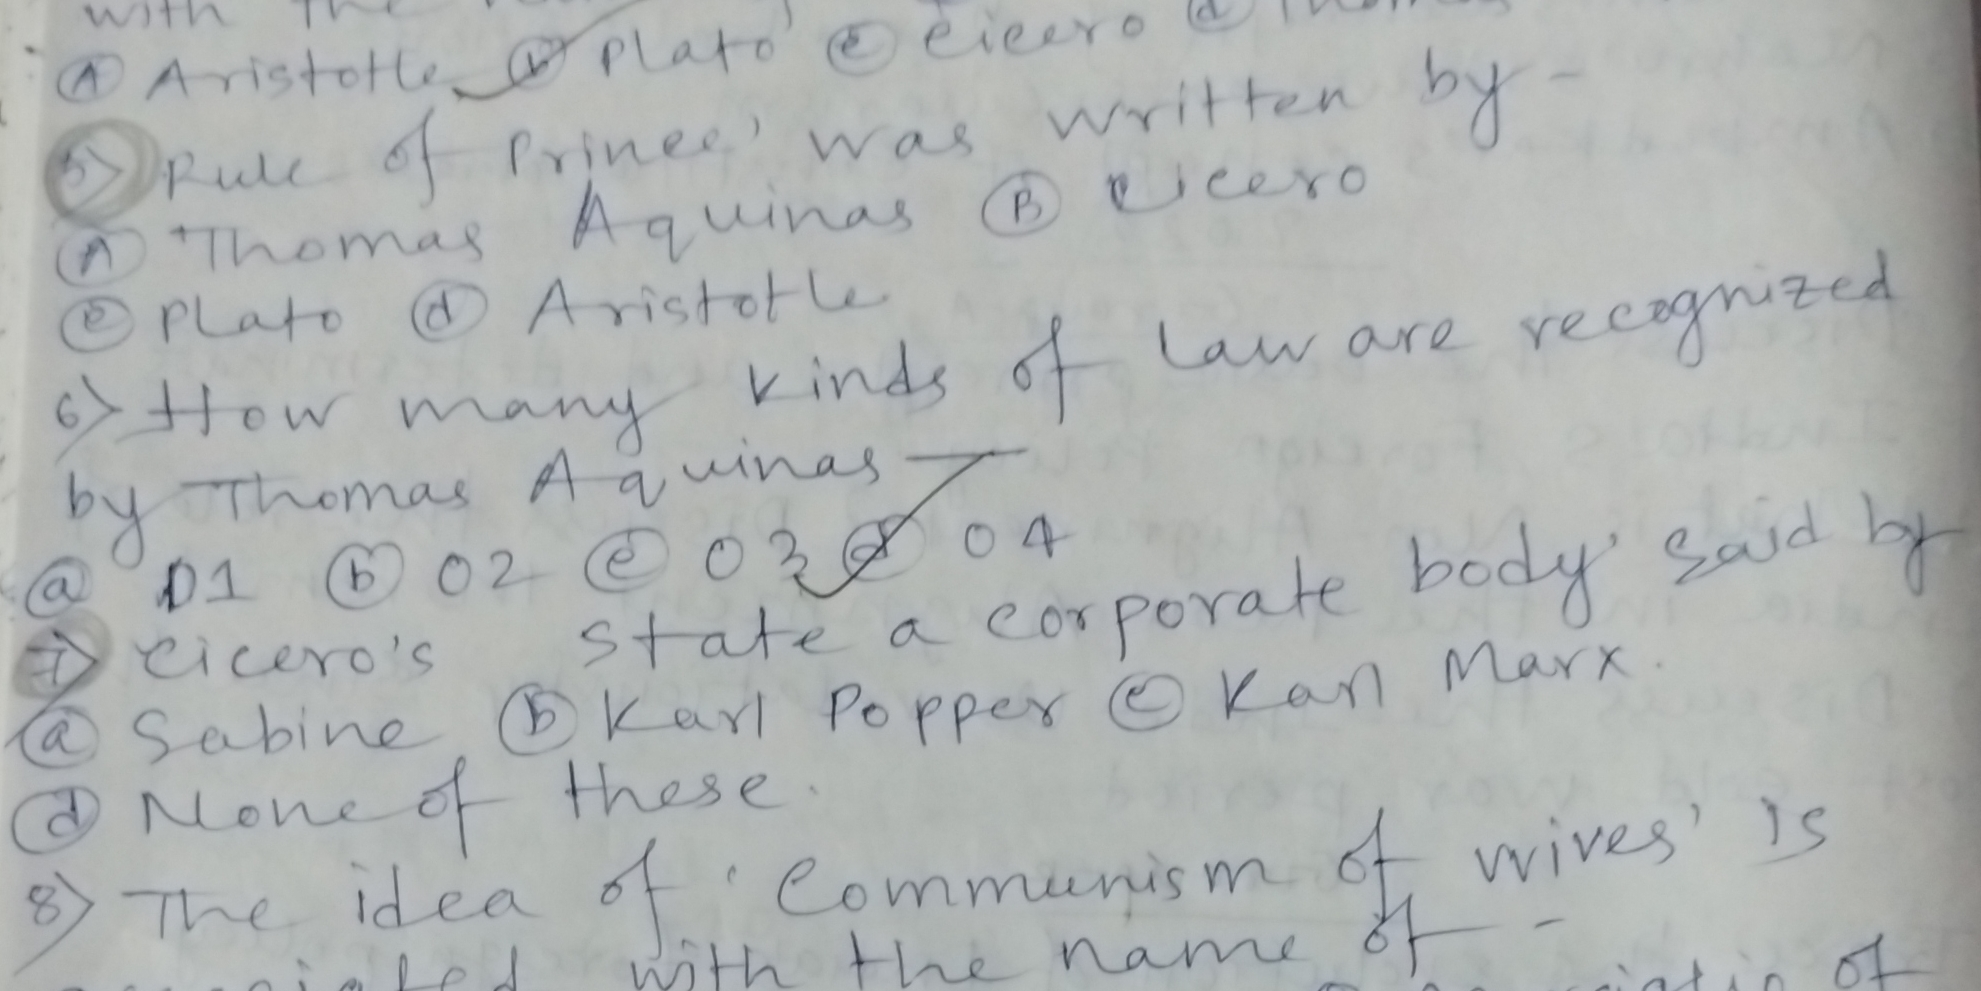 with the
Ⓐ Aristotle ⓑ Plato ⓒ Cicero ⓓ
5) Rule of Prince' was written by -
Ⓐ Thomas Aquinas Ⓑ Cicero
ⓒ Plato ⓓ Aristotle
6) How many kinds of law are recognized
by Thomas Aquinas -
ⓐ 01 ⓑ 02 ⓒ 03 ⓓ 04
7) Cicero's state a corporate body' said by
ⓐ Sabine ⓑ Karl Popper ⓒ Karl Marx.
ⓓ None of these.
8) The idea of 'Communism of wives' is
with the name of -
of